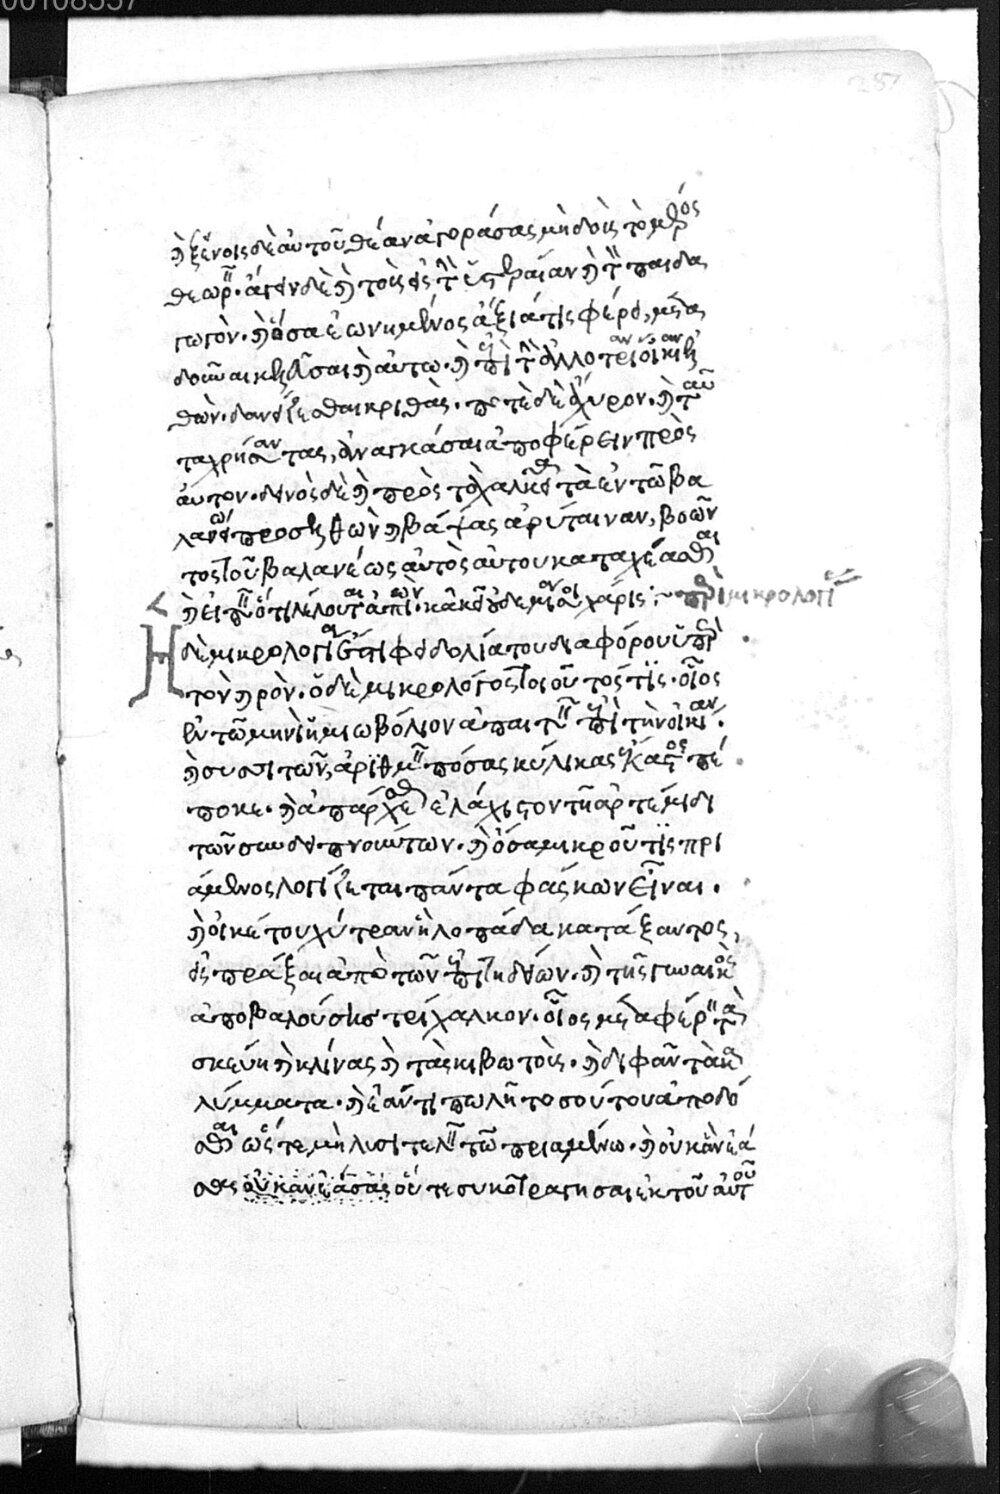 00108557
287
καὶ ξένοις δὲ αὐτοῦ θέαν ἀγοράσας μὴ δοὺς τὸ μέρος
θεωρεῖν· ἄγειν δὲ καὶ τοὺς υἱεῖς εἰς τὴν ὑστεραίαν καὶ τὸν παιδα
γωγὸν· καὶ ὅσα ἐωνημένος ἄξιά τις φέρει, μετα
δοῦναι κελεῦσαι καὶ αὐτω· καὶ ἐπὶ τὴν ἀλλοτρίαν οἰκίαν ἐλ
θὼν· δανείζεσθαι κριθὰς· ποτὲ δὲ ἄχυρον· καὶ ταῦ
τα χρήσαντας, ἀναγκάσαι ἀποφέρειν πρὸς
αὐτον· δεινὸς δὲ καὶ πρὸς τὰ χαλκεῖα τὰ ἐν τῶ βα
λανείω προσελθὼν καὶ βάψας ἀρύταιναν, βοῶν
τος τοῦ βαλανέως αὐτὸς αὑτου καταχέασθαι
καὶ εἰπεῖν ὅτι λέλουται ἀπιὼν· κἀκεῖ οὐδεμία σοι χάρις:~ περὶ μικρολογίας
Ἡ δὲ μικρολογία ἐστὶ φειδωλία του διαφόρου ὑπὲρ
τὸν καιρὸν· ὁ δὲ μικρολόγος τοιοῦτός τις· οἷος
ἐν τῶ μηνὶ ἡμιωβόλιον ἀπαιτεῖν ἐπὶ τὴν οἰκίαν·
καὶ συσσιτῶν, ἀριθμεῖν πόσας κύλικας ἕκαστος πέ
πωκε· καὶ ἀπάρχεσθαι ἐλάχιστον τῆ ἀρτέμιδι
τῶν συνδειπνούντων· καὶ ὅσα μικροῦ τις πρι
άμενος λογίζεται πάντα φάσκων εἶναι·
καὶ οἰκέτου χύτραν ἢ λοπάδα κατάξαντος,
εἰσπράξαι ἀπὸ τῶν ἐπιτηδείων· καὶ τῆς γυναικὸς
ἀποβαλούσης τρίχαλκον· οἷος μεταφέρειν τὰ
σκεύη καὶ κλίνας καὶ τὰς κιβωτοὺς· καὶ διφᾶν τὰ κα
λύμματα· καὶ ἐάν τι πωλῆ τοσούτου ἀποδό
σθαι ὥστε μὴ λυσιτελεῖν τῶ πριαμένω· καὶ οὐκ ἂν ἐά
σαι οὐκ ἂν ἐάσαι οὔτε συκοτραγῆσαι ἐκ τοῦ αὐτοῦ